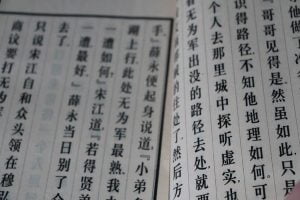 『哥哥见得是.然虽如此.只是
识得路径.不知他地理如何.可
个人去那里城中探听虚实.也
看无为军出没的路径去处.就要
贼的住处了.然后方
手.』薛永便起身说道.『小弟
湖上行.此处无为军最熟.我
一遭如何.』宋江道.『若得贤
一遭最好.』薛永当日别了
去了.
只说宋江自和众头领在穆弘
商议要打无为